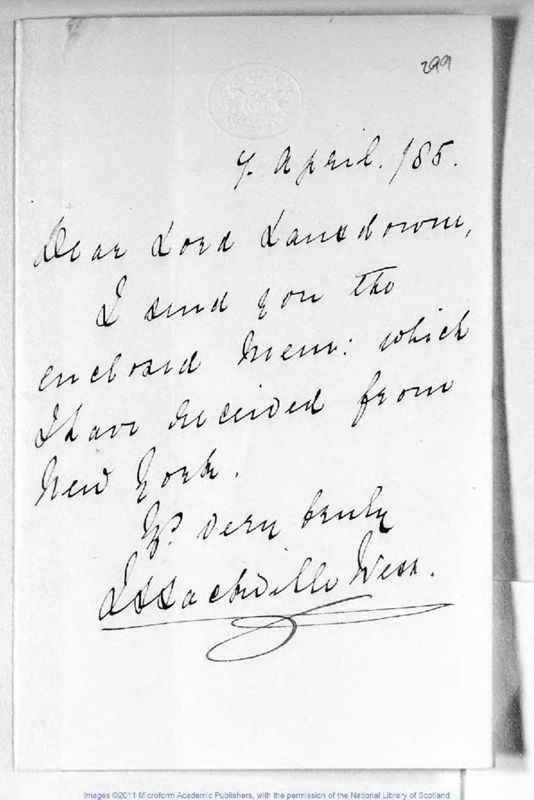 299
7. April. /85.
Dear Lord Lansdowne,
I send you the
enclosed Mem: which
I have received from
New York.
Yrs very truly
L S Sackville West.
Images ©2011 Microform Academic Publishers, with the permission of the National Library of Scotland